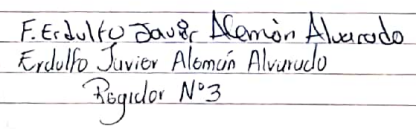 F. Erdulfo Javier Alemán Alvarado
Erdulfo Javier Alemán Alvarado
Regidor N°3